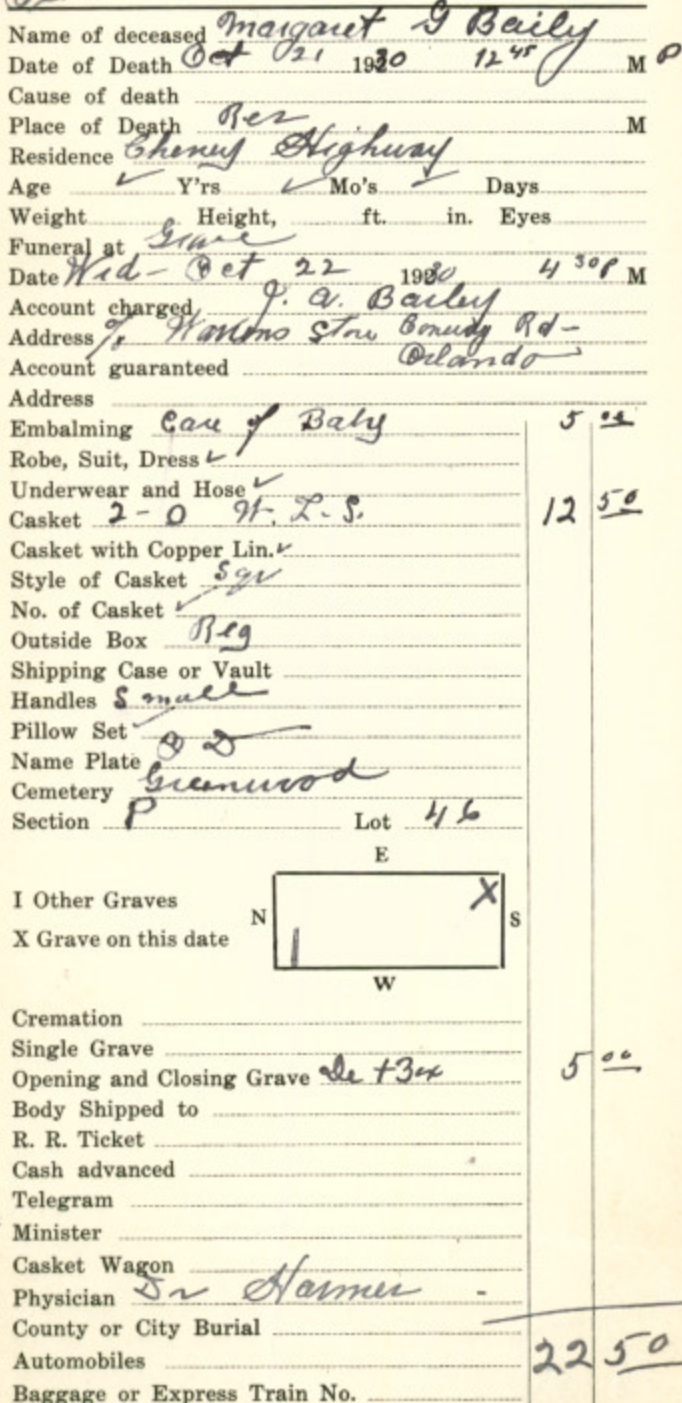 Name of deceased Margaret G Baily
Date of Death Oct 21 1930 12 45 M P
Cause of death
Place of Death Res M
Residence Cheney Highway
Age Y'rs Mo's Days
Weight Height, ft. in. Eyes
Funeral at Grave
Date Wed - Oct 22 1930 4 30 P M
Account charged J. A. Bailey
Address % Store Conway Rd-
Orlando
Account guaranteed
Address
Embalming Care of Baby 5 00
Robe, Suit, Dress ✓
Underwear and Hose ✓
Casket 2-0 W. L. S. 12 50
Casket with Copper Lin. ✓
Style of Casket Sqr
No. of Casket ✓
Outside Box Reg
Shipping Case or Vault
Handles Small
Pillow Set
Name Plate
Cemetery Greenwood
Section P Lot 46
E
I Other Graves
N X S
X Grave on this date
W
Cremation
Single Grave
Opening and Closing Grave 5 00
Body Shipped to
R. R. Ticket
Cash advanced
Telegram
Minister
Casket Wagon
Physician Dr Harmer -
County or City Burial
Automobiles 22 50
Baggage or Express Train No.